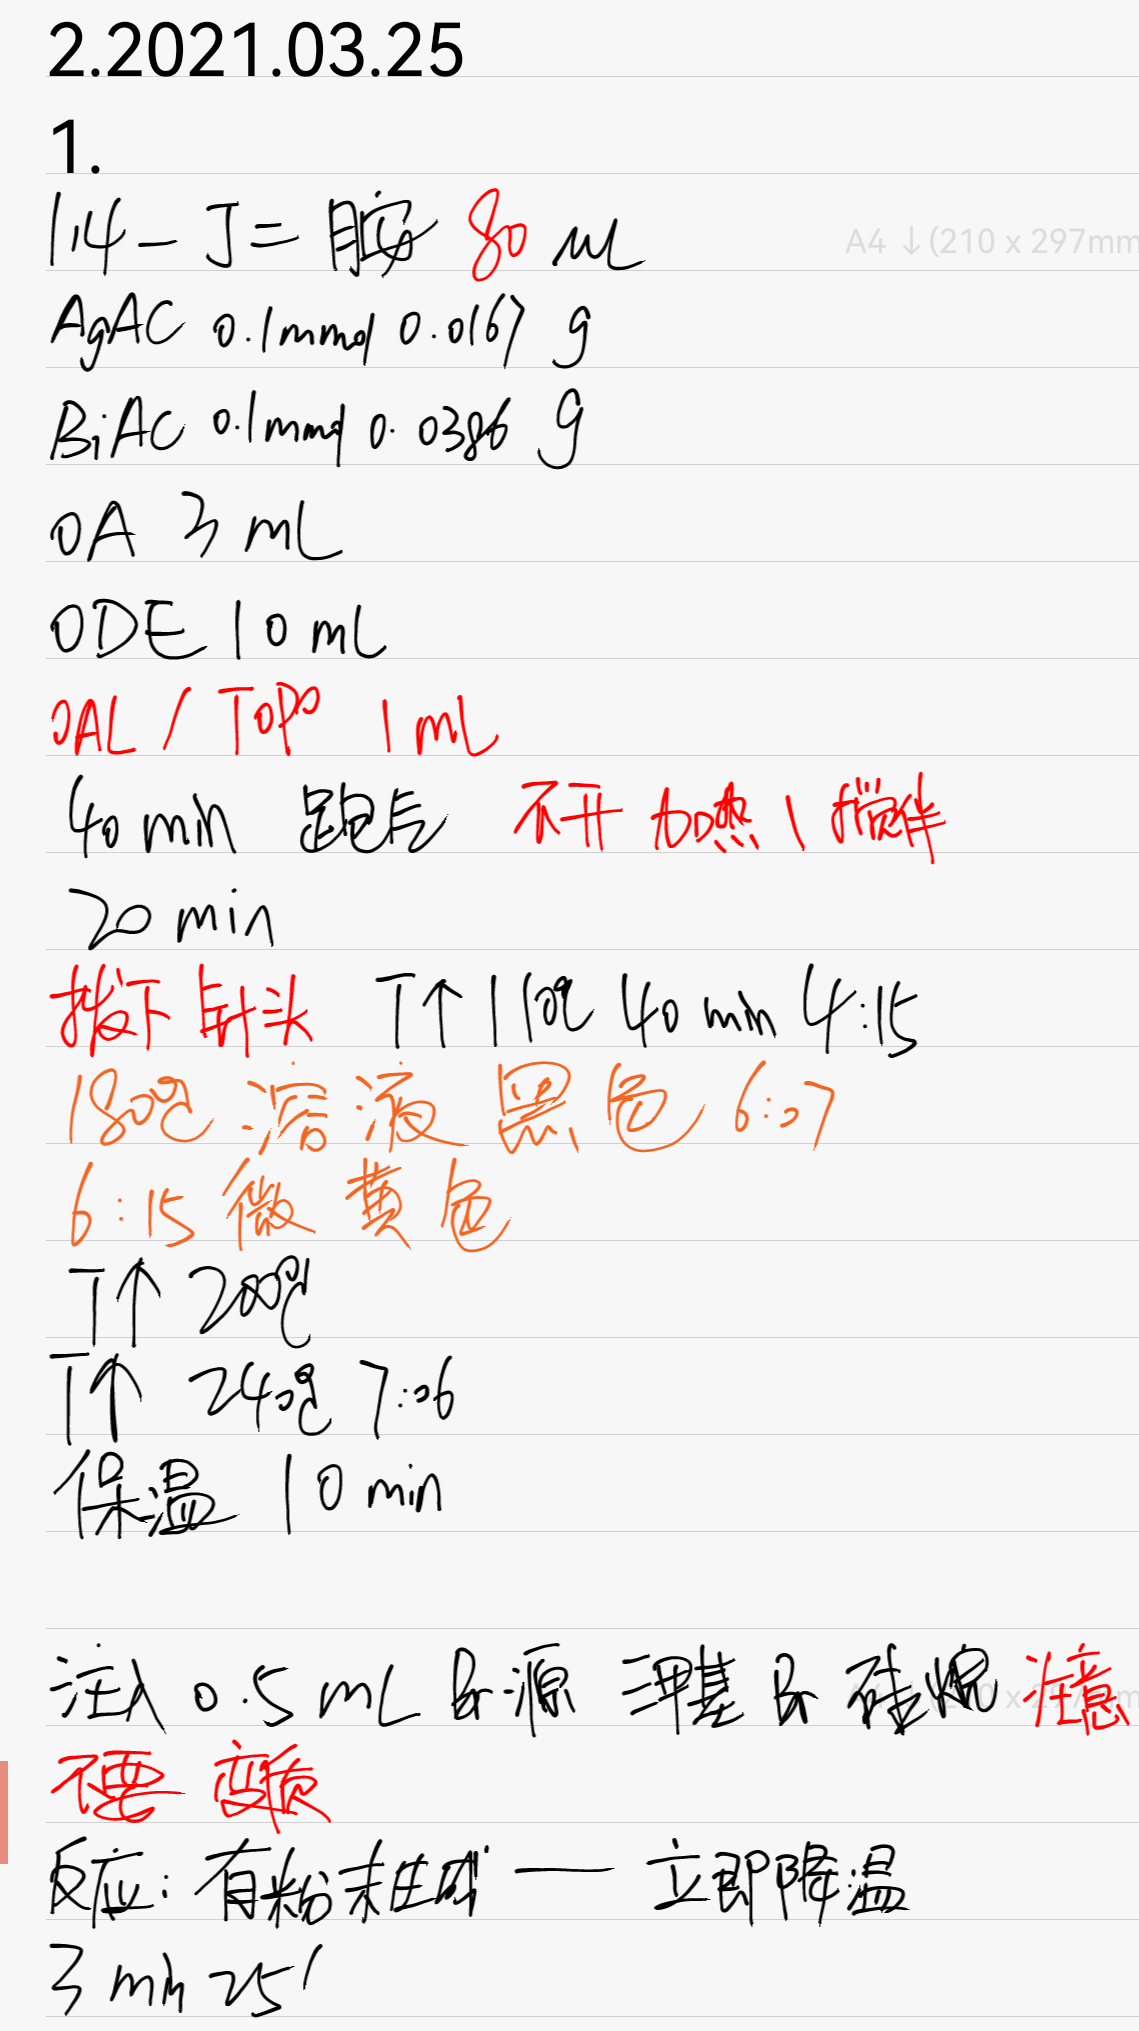 2.2021.03.25
1.
1,4-丁二胺 80 uL
A4 ↓(210 x 297mm
AgAC 0.1mmol 0.0167 g
BiAC 0.1mmol 0.0386 g
OA 3 mL
ODE 10 mL
OAL / TOPO 1 mL
40 min 跑气 不开加热、搅拌
20 min
拔下针头 T↑ 110℃ 40 min 4:15
180℃ 溶液 黑色 6:07
6:15 微黄色
T↑ 200℃
T↑ 240℃ 7:06
保温 10 min
注入 0.5 mL Br源 三甲基Br硅烷 注意
不要变质
反应: 有粉末生成 — 立即降温
3 min 25'